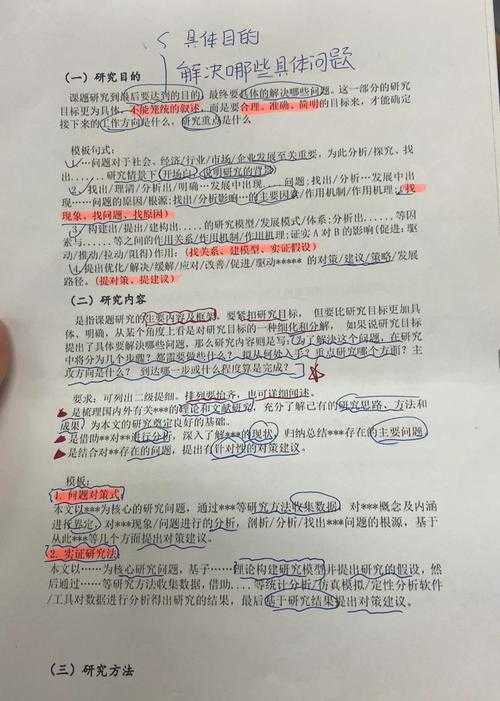 具体目的
解决哪些具体问题
（一）研究目的
课题研究到最后要达到的目的，最终要具体的解决哪些问题。这一部分的研究
目标更为具体，不能笼统的叙述，而是要合理、准确、简明的目标来，才能确定
接下来的工作方向是什么，研究重点是什么
模板句式：
1.…问题对于社会、经济/行业/市场/企业发展至关重要，为此分析/探究、找
出.......研究情景下（开场白，说明研究的背景）
2.找出/理清/分析出/明确…发展中出现......问题:找出/分析…发展中出
现…问题的原因/根源:找出/分析影响…的主要因素/作用机制/作用机理:（找
现象、找问题、找原因）
3.构建出/提出/建构出.....的研究模型/发展模式/体系:分析出......等因
素与......等之间的作用关系/作用机制/作用机理:证实 A 对 B 的影响(促进:驱
动/推动/拉动/阻碍)作用:（找关系、建模型、实证假设）
4.提出优化/解决/缓解/应对/改善/促进/驱动*****的对策/建议/策略/发展
路径。（提对策、提建议）
（二）研究内容
是指课题研究的主要内容及框架，要紧扣研究目标，但要比研究目标更加具
体、明确，从某个角度上看是对研究目标的一种细化和分解，如果说研究目标
提出了具体要解决哪些问题，那么研究内容则是写:为了解决这个问题，在研究
中将分为几个步骤？都需要做些什么？拟从何处入手？重点研究哪个方面？主
攻方向是什么？到达哪一步或什么程度算是完成？
要求：可列出二级提纲，排列要恰齐，也可详细阐述。
是梳理国内外有关***的理论和文献研究，充分了解已有的研究思路、方法和
成果，为本文的研究奠定良好的基础。
是借助**对**进行分析，深入了解***的现状，归纳总结***存在的主要问题
是结合对**存在的问题，提出有针对性的对策建议。
模板：
1. 问题对策式
本文以***为核心的研究问题，通过***等研究方法收集数据，对***概念及内涵
进行界定，对***现象/问题进行的分析，剖析/分析/找出***问题的根源，基于
从此***等几个方面提出对策建议。
2. 实证研究法
本文以……为核心研究问题，基于……理论构建研究模型并提出研究的假设，然
后通过……等研究方法收集数据，借助....等统计分析/仿真模拟/定性分析软件
/工具对数据进行分析得出研究的结果，最后基于研究结果提出对策建议。
（三）研究方法